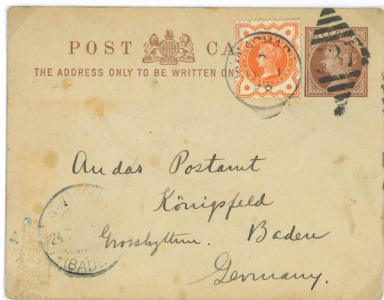 POST CA
THE ADDRESS ONLY TO BE WRITTEN ON
An das Postamt
Königsfeld
Grosshzttm. Baden
Germany.
24
(BAD